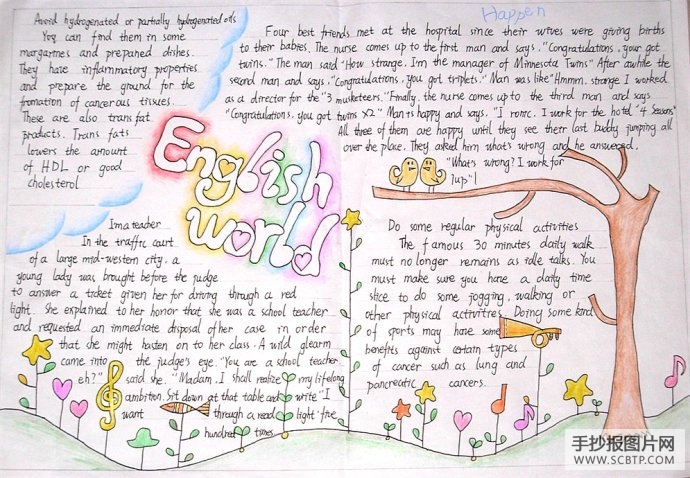 Avoid hydrogenated or partially hydrogenated oils
You can find them in some
margarines and prepaned dishes.
They have inflammatory properties
and prepare the ground for the
fromation of cancerous tissues.
These are also trans fat
products. Trans fats
lowers the amount
of HDL or good
cholesterol
Happen
Four best friends met at the hospital since their wives were giving births
to their babies. The nurse comes up to the first man and says. "Congratulations, your got
twins." The man said "How strange. I'm the manager of Minnesota Twins" After awhile the
second man and says. "Congratulations, you got triplets." Man was like "Hmmm. strange I worked
as a director for the "3 musketeers." Finally, the nurse comes up to the third man and says
"Congratulations. you got twins x2" Man is happy and says. "I ronic. I work for the hotel "4 Seasons"
All three of them are happy until they see their last buddy jumping all
over the place. They asked him what's wrong and he answered.
"What's wrong? I work for
7up"!
English
world
I'm a teacher
In the traffic court
of a large mid-western city. a
young lady was brought before the judge
to answer a ticket given her for driving through a red
light. She explained to her honor that she was a school teacher
and requested an immediate disposal of her case in order
that she might hasten on to her class. A wild glearm
came into the judge's eye. "You are a school teacher.
eh?" said she. "Madam. I shall realize my lifelong
ambition. Sit down at that table and write "I
want through a read light five
hundred times.
Do some regular physical activities
The famous 30 minutes daily walk
must no longer remains as idle talks. You
must make sure you have a daily time
slice to do some jogging, walking or
other physical activitres. Doing some kind
of sports may have some
benefits against certain types
of cancer such as lung and
pancreatic cancers.
手抄报图片网
WWW.SCBTP.COM